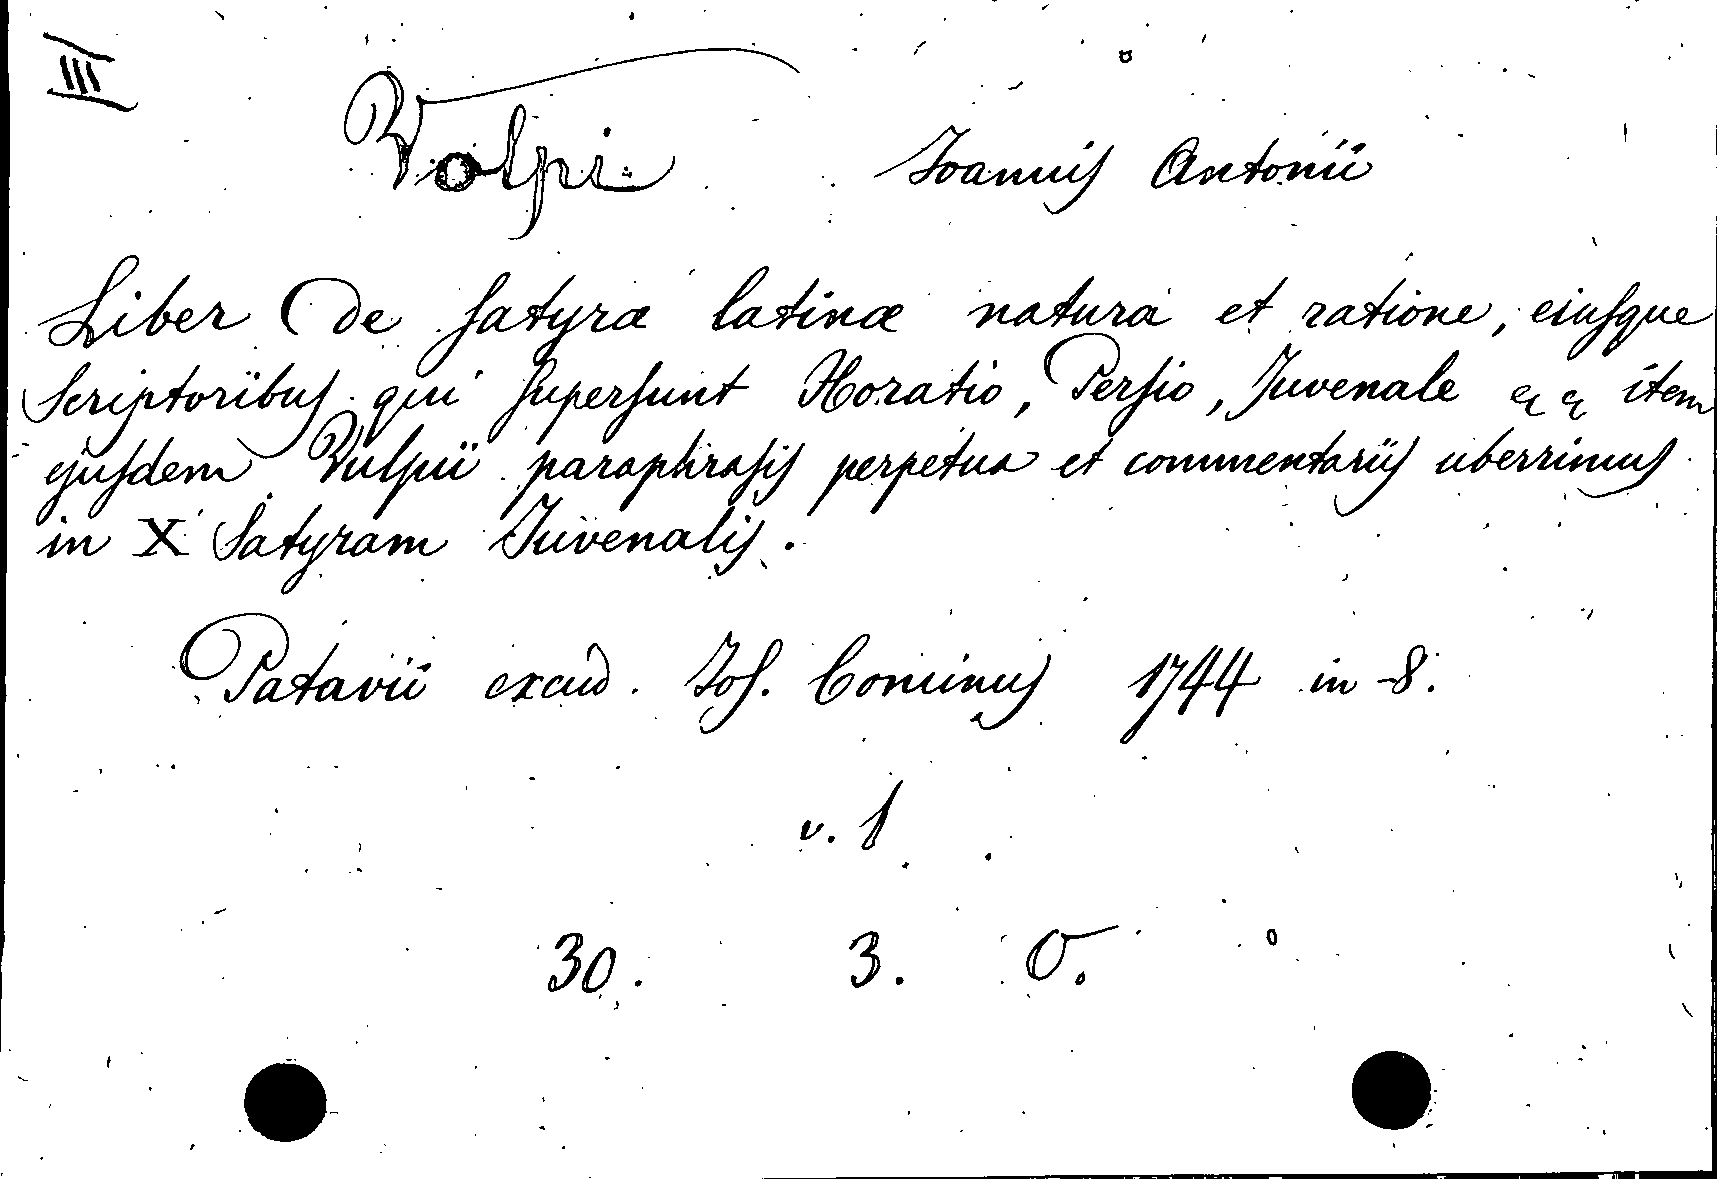 III
Volpi Joannis Antonii
Liber De satyræ latinæ natura et ratione, eiusque
scriptoribus qui supersunt Horatio, Persio, Juvenale item
ejusdem Vulpii paraphrasis perpetua et commentariis uberrimus
in X Satyram Juvenalis.
Patavii excud. Jos. Cominus 1744 in-8.
v. 1
30. 3. O.